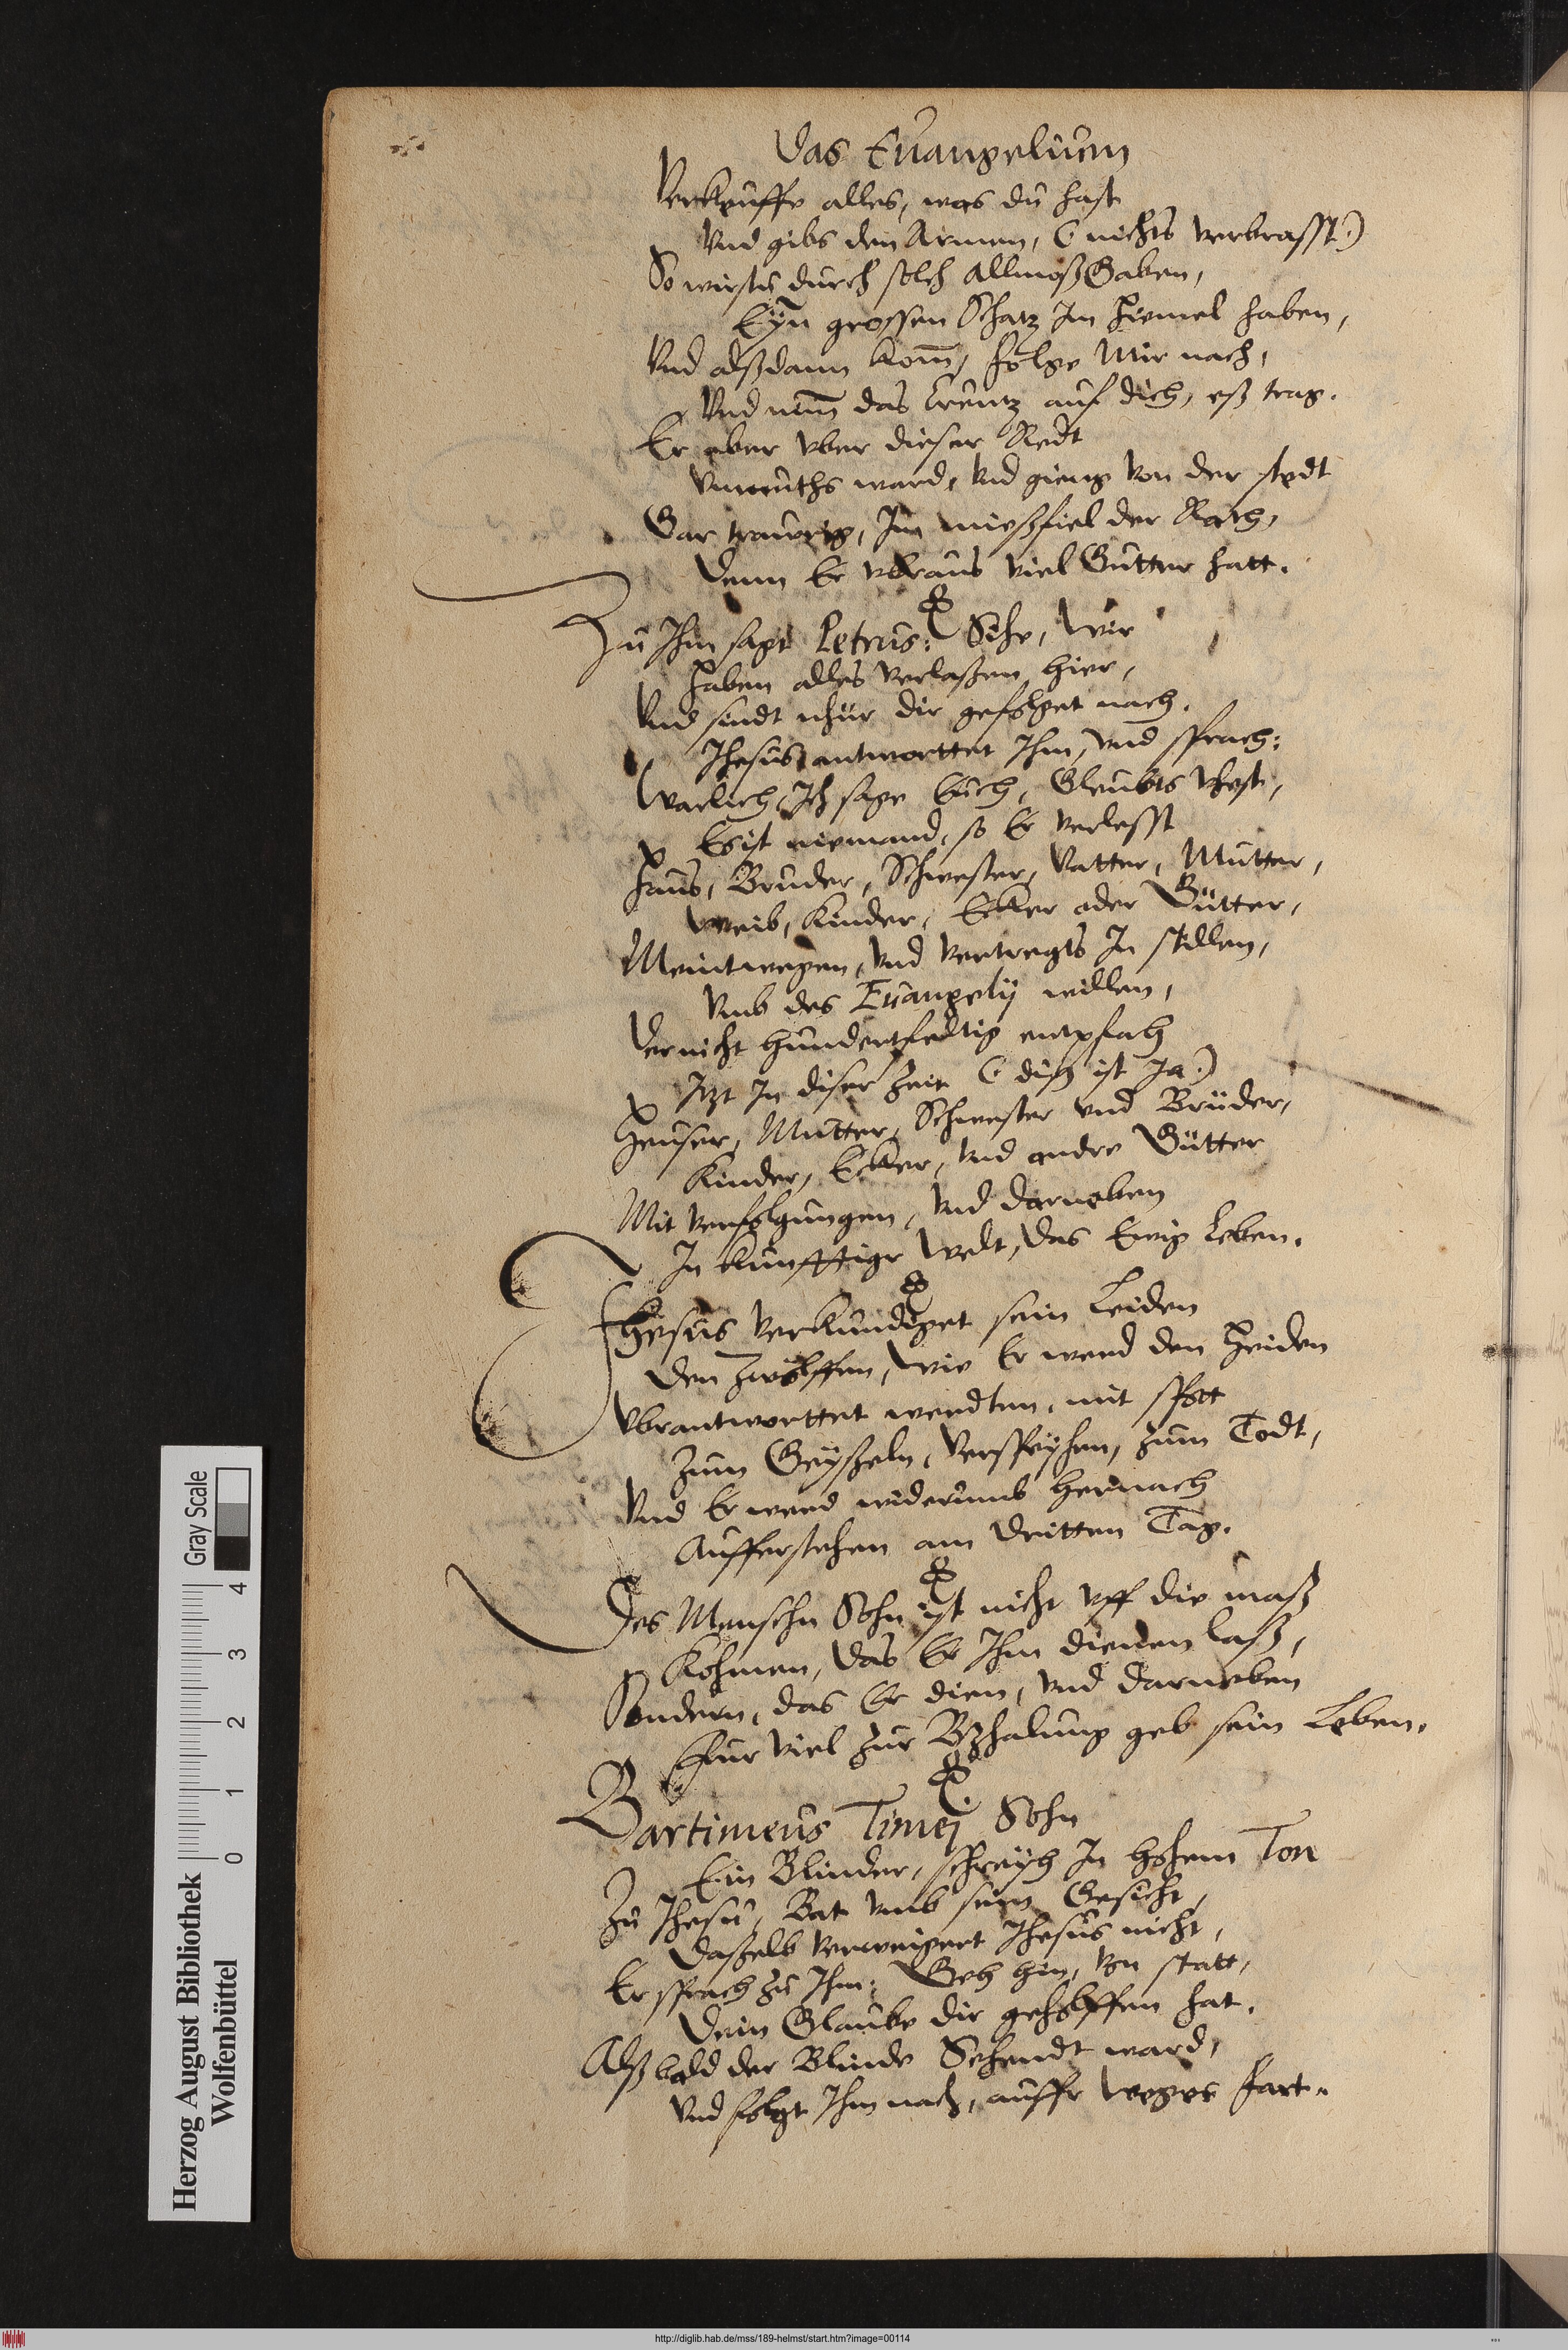 Das Euangelium
Verkeuffe alles, was du hast
Vnd gibs den Armen, (nichts verbrasst.)
So wirstu durch solch AllmoßGaben,
Eÿn grossen Schatz Im Hiemel haben,
Vnd alßdann kom̄, folge Mir nach,
Vnd nim̄ das Creutz auf dich, eß trag.
Er aber vber dieser Redt
Vnmuths ward, Vnd gieng von der stedt
Gar traurig, Im mießfiel der Rath,
Denn Er vberaus viel Gutter hatt.
Zu Ihm sagt Petrus: Sihe, Wir
Haben alles verlaßen hier,
Vnd sindt nhur dir gefolget nach.
Ihesus antworttet Ihm, vnd sprach:
Warlich, Ich sage Euch, Gleubts vhest,
Es ist niemand, so Er verlesst
Haus, Bruder, Schwester, Vatter, Mutter,
Weib, Kinder, Ecker oder Gütter,
Meintwegen, vnd vertregts In stillen,
Vmb des Euangelij willen,
Der nicht hundertfeltig entpfah
Itzt In diser Zeit (diß ist Ja.)
Heuser, Mutter, Schwester vnd Brüder,
Kinder, Ecker, vnd andre Gütter
Mit verfolgungen, vnd darneben
In kunfftiger Welt, das Ewig Leben.
Ihesus verkundiget sein Leiden
Den Zwölffen, Wie Er werd den Heiden
Vbrantworttet werdten, mit spott
Zum Geÿßeln, Verspeÿhen, zum Todt,
Vnd Er werd widerumb hernach
Aufferstehen am Dritten Tag.
Des Menschn Sohn ist nicht vff die maß
Kohmen, das Er Ihm dienen laß,
Sondern, das Er dien, vnd darneben
Fur viel zur Bzhalung geb sein Leben.
Bartimeus Timej Sohn
Ein Blinder, schreÿh In hohem Ton
Zu Ihesu, Bat vmb sein Gesicht,
Daßelb verweigert Ihesus nicht,
Er sprach zu Ihm: Geh hin, von statt,
Dein Glaube dir geholffen hat.
Alßbald der Blinde Sehendt ward,
Vnd folgt Ihm nach, auffr weges fart.
Herzog August Bibliothek
Wolfenbüttel
0 1 2 3 4
Gray Scale
http://diglib.hab.de/mss/189-helmst/start.htm?image=00114